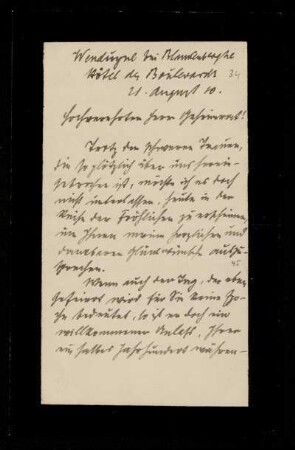 Wenduyne bei Blankenberghe
Hôtel des Boulevards 34
21. August 10.
Hochverehrter Herr Geheimrat!
Trotz der schweren Trauer,
die so plötzlich über uns herein-
gebrochen ist, möchte ich es doch
nicht unterlassen, heute in der
Reihe der Fröhlichen zu erscheinen,
um Ihnen meine herzlichen und
dankbaren Glückwünsche auszu-
sprechen.
Wenn auch der Tag, der eben
gefeiert wird für Sie keine Epo-
che bedeutet, so ist er doch ein
willkommener Anlaß, Ihrer
ein halbes Jahrhundert währen-